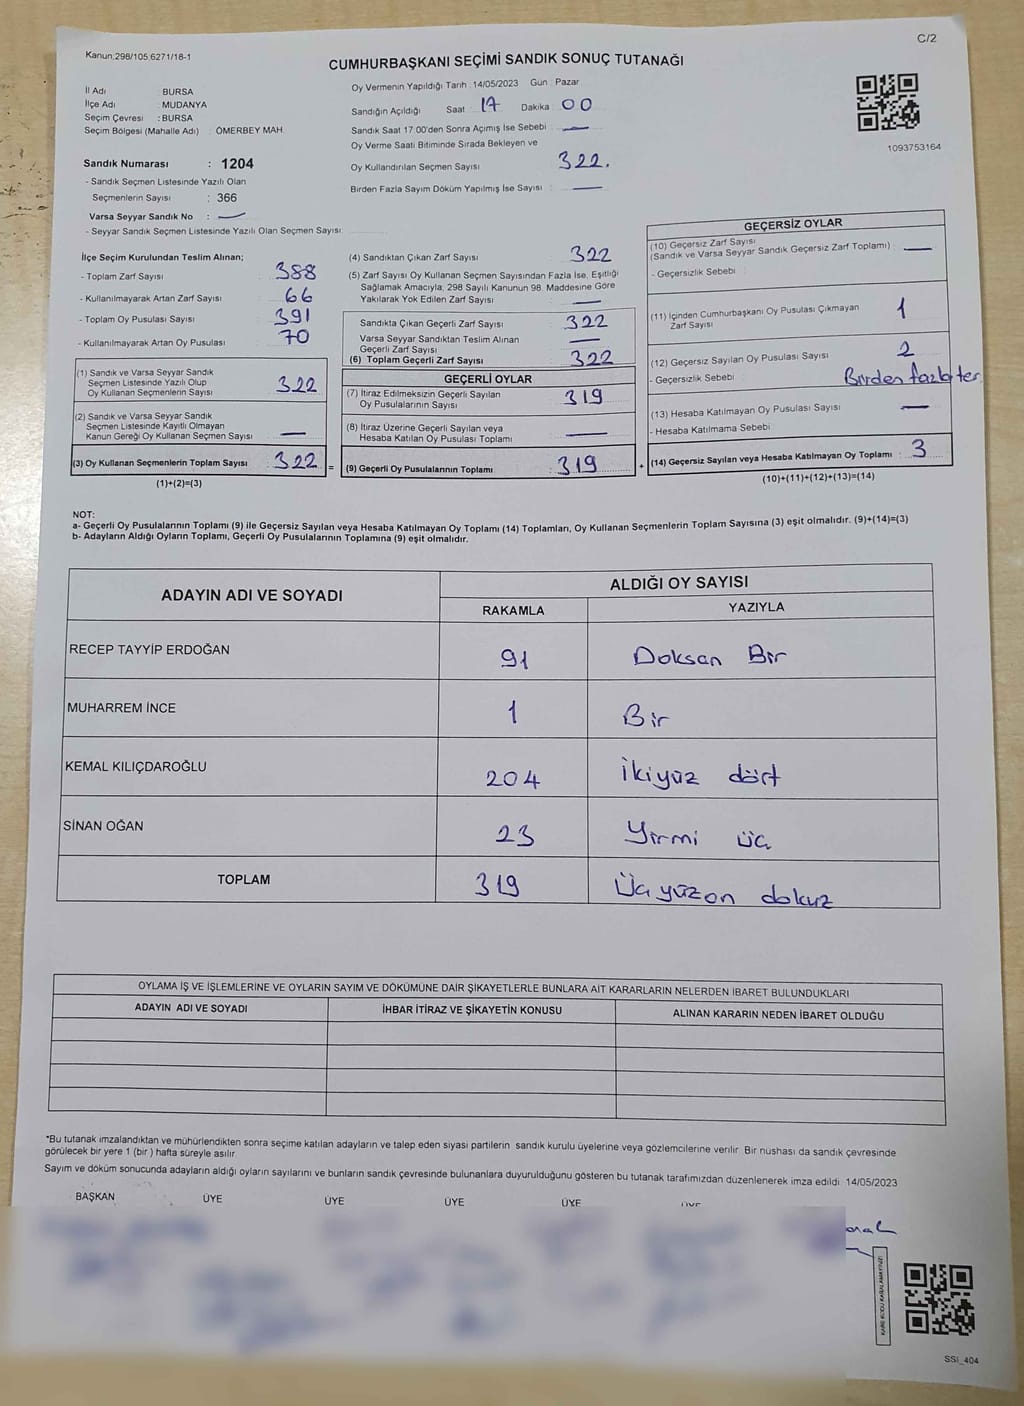 C/2
Kanun:298/105;6271/18-1
CUMHURBAŞKANI SEÇİMİ SANDIK SONUÇ TUTANAĞI
İl Adı BURSA
İlçe Adı : MUDANYA
Seçim Çevresi : BURSA
Seçim Bölgesi (Mahalle Adı) : ÖMERBEY MAH.
Sandık Numarası : 1204
- Sandık Seçmen Listesinde Yazılı Olan
Seçmenlerin Sayısı : 366
Varsa Seyyar Sandık No : —
- Seyyar Sandık Seçmen Listesinde Yazılı Olan Seçmen Sayısı:
Oy Vermenin Yapıldığı Tarih : 14/05/2023 Gün : Pazar
Sandığın Açıldığı Saat : 17 Dakika : 00
Sandık Saat 17:00'den Sonra Açımış İse Sebebi : —
Oy Verme Saati Bitiminde Sırada Bekleyen ve
Oy Kullandırılan Seçmen Sayısı : 322.
Birden Fazla Sayım Döküm Yapılmış İse Sayısı : —
1093753164
İlçe Seçim Kurulundan Teslim Alınan;
- Toplam Zarf Sayısı : 388
- Kullanılmayarak Artan Zarf Sayısı : 66
- Toplam Oy Pusulası Sayısı : 391
- Kullanılmayarak Artan Oy Pusulası : 70
(1) Sandık ve Varsa Seyyar Sandık
Seçmen Listesinde Yazılı Olup
Oy Kullanan Seçmenlerin Sayısı : 322
(2) Sandık ve Varsa Seyyar Sandık
Seçmen Listesinde Kayıtlı Olmayan
Kanun Gereği Oy Kullanan Seçmen Sayısı : —
(3) Oy Kullanan Seçmenlerin Toplam Sayısı : 322
(1)+(2)=(3)
(4) Sandıktan Çıkan Zarf Sayısı : 322
(5) Zarf Sayısı Oy Kullanan Seçmen Sayısından Fazla İse, Eşitliği
Sağlamak Amacıyla, 298 Sayılı Kanunun 98. Maddesine Göre
Yakılarak Yok Edilen Zarf Sayısı : —
Sandıkta Çıkan Geçerli Zarf Sayısı : 322
Varsa Seyyar Sandıktan Teslim Alınan
Geçerli Zarf Sayısı : —
(6) Toplam Geçerli Zarf Sayısı : 322
GEÇERLİ OYLAR
(7) İtiraz Edilmeksizin Geçerli Sayılan
Oy Pusulalarının Sayısı : 319
(8) İtiraz Üzerine Geçerli Sayılan veya
Hesaba Katılan Oy Pusulası Toplamı : —
= (9) Geçerli Oy Pusulalarının Toplamı : 319
GEÇERSİZ OYLAR
(10) Geçersiz Zarf Sayısı
(Sandık ve Varsa Seyyar Sandık Geçersiz Zarf Toplamı) : —
- Geçersizlik Sebebi :
(11) İçinden Cumhurbaşkanı Oy Pusulası Çıkmayan
Zarf Sayısı : 1
(12) Geçersiz Sayılan Oy Pusulası Sayısı : 2
- Geçersizlik Sebebi : Birden fazla ter
(13) Hesaba Katılmayan Oy Pusulası Sayısı : —
- Hesaba Katılmama Sebebi :
+ (14) Geçersiz Sayılan veya Hesaba Katılmayan Oy Toplamı : 3
(10)+(11)+(12)+(13)=(14)
NOT:
a- Geçerli Oy Pusulalarının Toplamı (9) ile Geçersiz Sayılan veya Hesaba Katılmayan Oy Toplamı (14) Toplamları, Oy Kullanan Seçmenlerin Toplam Sayısına (3) eşit olmalıdır. (9)+(14)=(3)
b- Adayların Aldığı Oyların Toplamı, Geçerli Oy Pusulalarının Toplamına (9) eşit olmalıdır.
ADAYIN ADI VE SOYADI ALDIĞI OY SAYISI
RAKAMLA YAZIYLA
RECEP TAYYİP ERDOĞAN 91 Doksan Bir
MUHARREM İNCE 1 Bir
KEMAL KILIÇDAROĞLU 204 ikiyüz dört
SİNAN OĞAN 23 Yirmi üç
TOPLAM 319 Üçyüzon dokuz
OYLAMA İŞ VE İŞLEMLERİNE VE OYLARIN SAYIM VE DÖKÜMÜNE DAİR ŞİKAYETLERLE BUNLARA AİT KARARLARIN NELERDEN İBARET BULUNDUKLARI
ADAYIN ADI VE SOYADI İHBAR İTİRAZ VE ŞİKAYETİN KONUSU ALINAN KARARIN NEDEN İBARET OLDUĞU
*Bu tutanak imzalandıktan ve mühürlendikten sonra seçime katılan adayların ve talep eden siyasi partilerin sandık kurulu üyelerine veya gözlemcilerine verilir. Bir nushası da sandık çevresinde
görülecek bir yere 1 (bir) hafta süreyle asılır.
Sayım ve döküm sonucunda adayların aldığı oyların sayılarını ve bunların sandık çevresinde bulunanlara duyurulduğunu gösteren bu tutanak tarafımızdan düzenlenerek imza edildi. 14/05/2023
BAŞKAN ÜYE ÜYE ÜYE ÜYE ÜYE
KARE KODU KARALAMAYINIZ!
SSI_404